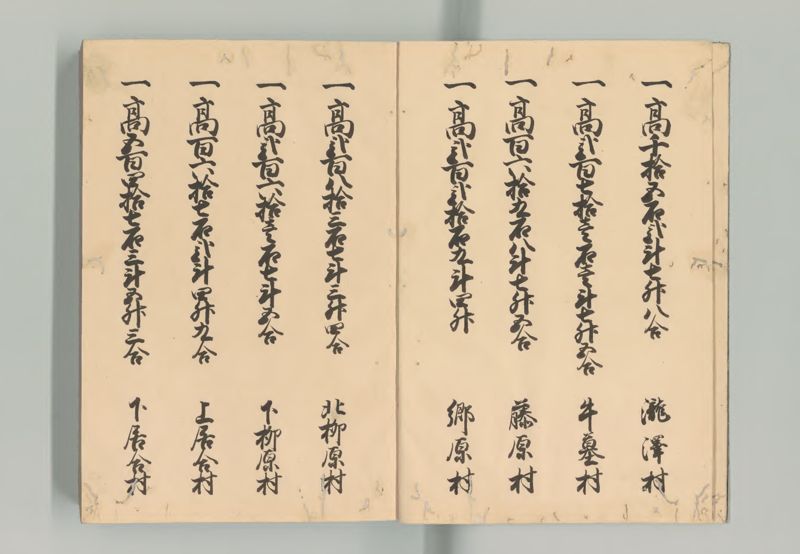 一高千拾五石弐斗七升八合 瀧澤村
一高弐百七拾壱石壱斗七升五合 牛墓村
一高百六拾九石八斗七升五合 藤原村
一高弐百弐拾石九斗四升 郷原村
一高弐百八拾三石七斗三升四合 北柳原村
一高弐百六拾壱石七斗五合 下柳原村
一高百六拾七石弐斗四升九合 上居合村
一高五百四拾七石三斗五升三合 下居合村